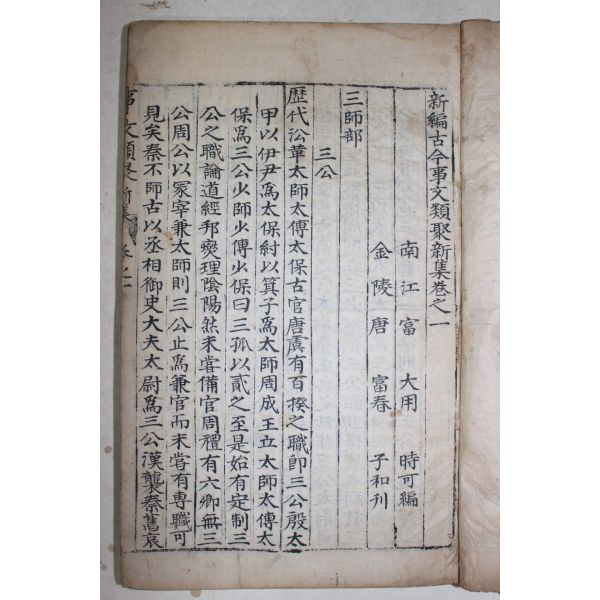 新編古今事文類聚新集卷之一
南江富 大用 時可編
金陵唐 富春 子和刋
三師部
三公
歷代沿革太師太傅太保古官唐虞有百揆之職卽三公殷太
甲以伊尹爲太保紂以箕子爲太師周成王立太師太傅太
保爲三公少師少傅少保曰三孤以貳之至是始有定制三
公之職論道經邦燮理陰陽然未嘗備官周禮有六卿無三
公周公以冢宰兼太師則三公止爲兼官而未嘗有専職可
見矣秦不師古以丞相御史大夫太尉爲三公漢襲秦舊哀
事文類聚新集 卷之一